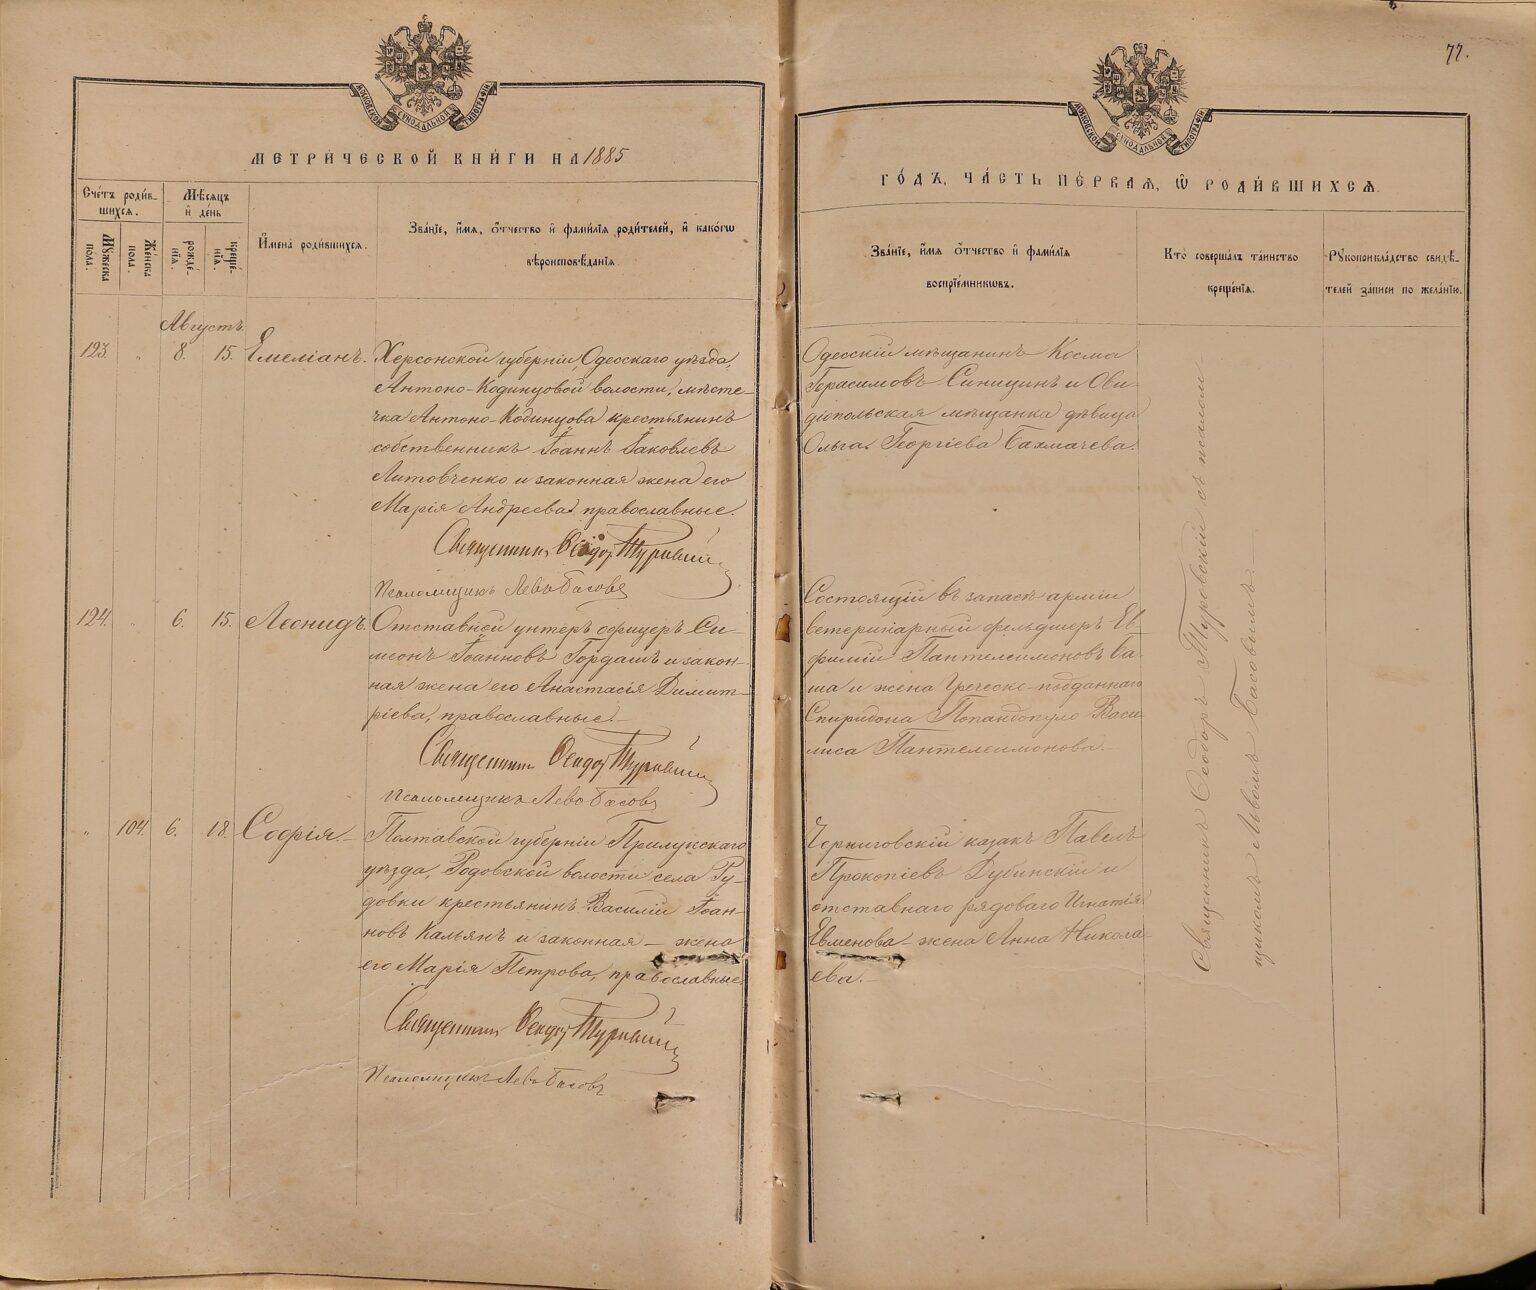 МОСКОВСКОЙ СѴНОДАЛЬНОЙ ТИПОГРАФІИ
МЕТРИ́ЧЕСКОЙ КНИ́ГИ НА 1885
Сче́тъ роди́в-
шихсѧ.
Мѣ́сѧцъ
и҆ де́нь
Мꙋ́жеска
пола.
Же́нска
пола.
рожде́-
нїѧ.
креще́-
нїѧ.
И҆мена̀ роди́вшихсѧ.
Зва́нїе, и҆́мѧ, ѻ҆́тчество и҆ фами́лїѧ роди́телей, и҆ како́гѡ
вѣроисповѣ́данїѧ.
Августъ.
123. " 8. 15. Емеліанъ.
Херсонской губерніи, Одесскаго уѣзда,
Антоно-Кодинцовой волости, мѣсте-
чка Антоно-Кодинцова крестьянинъ
собственникъ Іоаннъ Іаковлевъ
Литовченко и законная жена его
Марія Андреева, православные.
Священникъ Ѳеодоръ Туровскій
Псаломщикъ Левъ Басовъ
124. " 6. 15. Леонидъ.
Отставной унтеръ офицеръ Си-
меонъ Іоанновъ Гордашъ и закон-
ная жена его Анастасія Димит-
ріева, православные.
Священникъ Ѳеодоръ Туровскій
Псаломщикъ Левъ Басовъ
" 104. 6. 18. Софія.
Полтавской губерніи Прилукскаго
уѣзда, Рудовской волости села Ру-
довки крестьянинъ Василій Іоан-
новъ Кальянъ и законная – жена
его Марія Петрова, православные
Священникъ Ѳеодоръ Туровскій
Псаломщикъ Левъ Басовъ
77.
МОСКОВСКОЙ СѴНОДАЛЬНОЙ ТИПОГРАФІИ
ГО́ДЪ, ЧА́СТЬ ПЕ́РВАѦ, Ѡ҆ РОДИ́ВШИХСѦ.
Зва́нїе, и҆́мѧ ѻ҆́тчество и҆ фами́лїѧ
воспрїе́мникѡвъ.
Кто̀ соверша́лъ та́инство
креще́нїѧ.
Рꙋкоприкла́дство свидѣ́-
телей за́писи по жела́нїю.
Одесскій мѣщанинъ Косма
Герасимовъ Синицинъ и Ови-
діопольская мѣщанка дѣвица
Ольга Георгіева Бахмачева.
Состоящій въ запасѣ арміи
ветеринарный фельдшеръ Ев-
фимій Пантелеимоновъ Са-
ша и жена Греческо-подданнаго
Спиридона Попандопуло Васи-
лиса Пантелеимонова.
Черниговскій казакъ Павелъ
Прокопіевъ Дубинскій и
отставнаго рядоваго Игнатія
Евменова – жена Анна Никола-
ева.
Священникъ Ѳеодоръ Туровскій съ псалом-
щикомъ Львомъ Басовымъ.